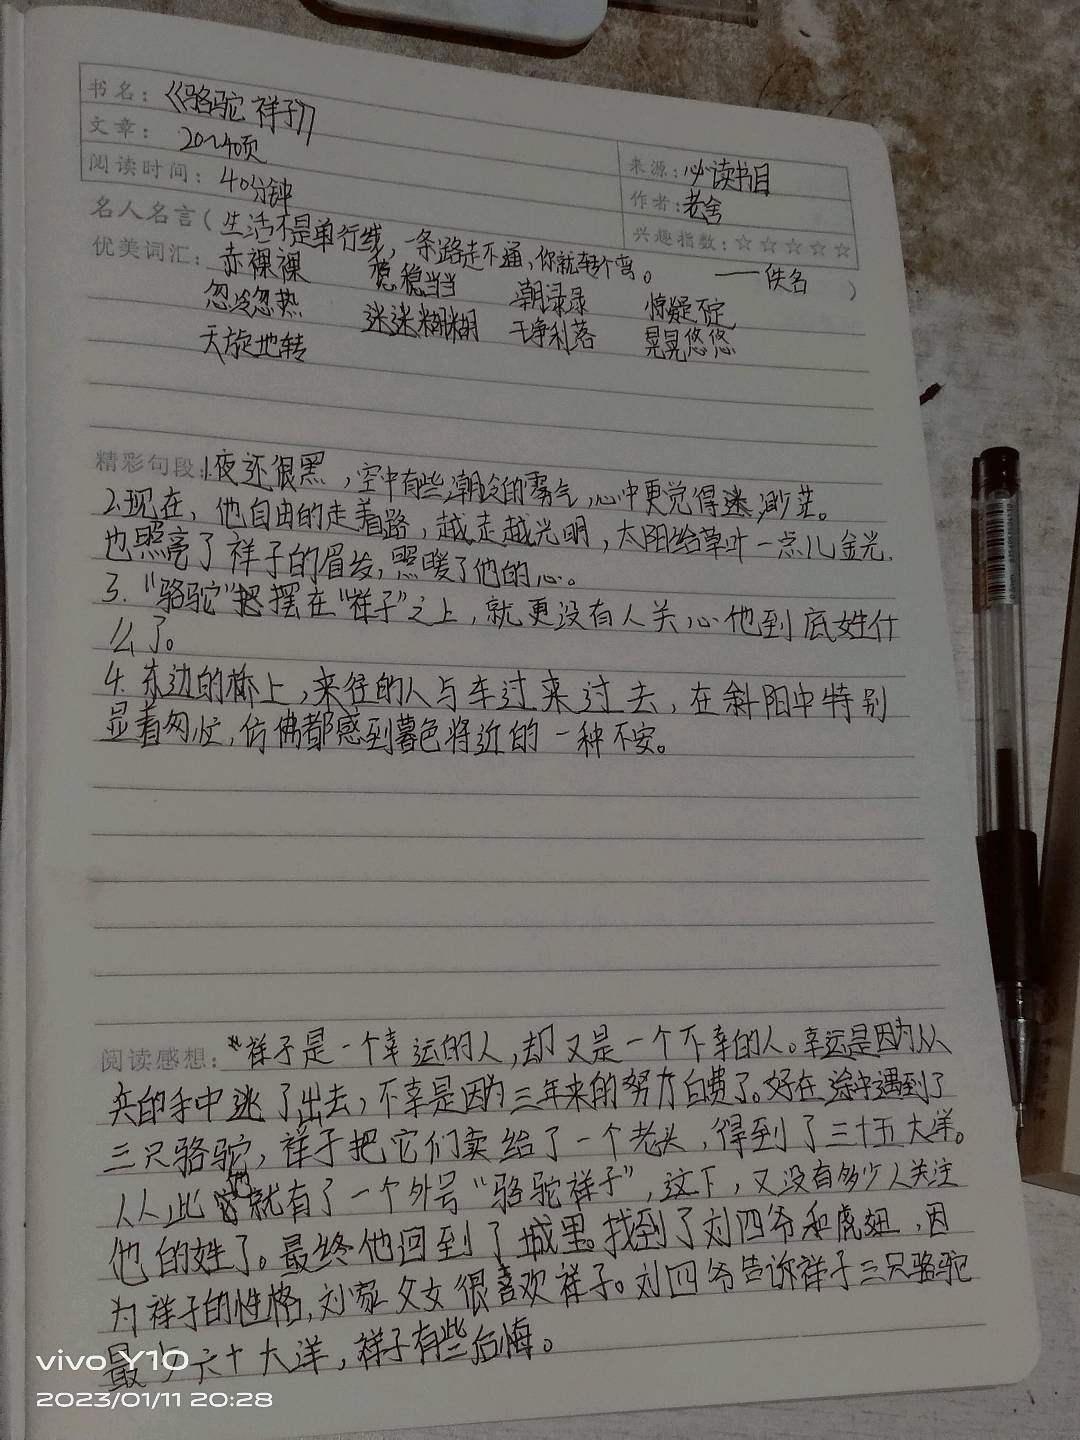 书名：《骆驼祥子》
文章：20~40页
来源：必读书目
阅读时间：40分钟
作者：老舍
名人名言（生活不是单行线，一条路走不通，你就转个弯。——佚名）
兴趣指数：☆☆☆☆☆
优美词汇：赤裸裸 稳稳当当 潮渌渌 惊疑不定
忽冷忽热 迷迷糊糊 干净利落 晃晃悠悠
天旋地转
精彩句段：1.夜还很黑，空中有些潮冷的雾气，心中更觉得迷渺茫。
2.现在，他自由的走着路，越走越光明，太阳给草叶一点儿金光.
也照亮了祥子的眉发，照暖了他的心。
3.“骆驼”摆在“祥子”之上，就更没有人关心他到底姓什
么了。
4.东边的桥上，来往的人与车过来过去，在斜阳中特别
显着匆忙，仿佛都感到暮色将近的一种不安。
阅读感想：祥子是一个幸运的人，却又是一个不幸的人。幸运是因为从
兵的手中逃了出去，不幸是因为三年来的努力白费了。好在途中遇到了
三只骆驼，祥子把它们卖给了一个老头，得到了三十五大洋。
从此就有了一个外号“骆驼祥子”，这下，又没有多少人关注
他的姓了。最终他回到了城里。找到了刘四爷和虎妞，因
为祥子的性格，刘家父女很喜欢祥子。刘四爷告诉祥子三只骆驼
最少六十大洋，祥子有些后悔。
vivo Y10
2023/01/11 20:28